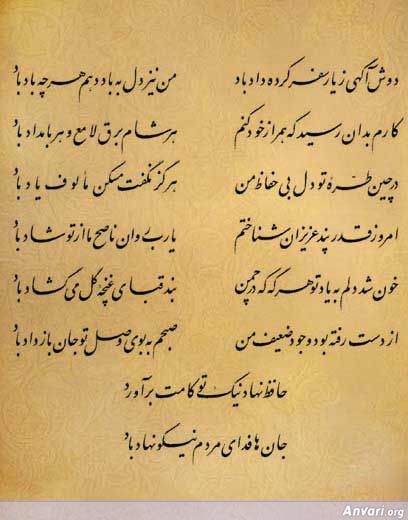 دوش آگهی ز یار سفر کرده داد باد من نیز دل به باد دهم هر چه باد باد
کارم بدان رسید که همراز خود کنم هر شام برق لامع و هر بامداد باد
در چین طرهٔ تو دل بی حفاظ من هرگز نگفت مسکن مألوف یاد باد
امروز قدر پند عزیزان شناختم یارب روان ناصح ما از تو شاد باد
خون شد دلم به یاد تو هر گه که در چمن بند قبای غنچه گل می گشاد باد
از دست رفته بود وجود ضعیف من صبحم به بوی وصل تو جان باز داد باد
حافظ نهاد نیک تو کامت برآورد
جان ها فدای مردم نیکو نهاد باد
Anvari.org